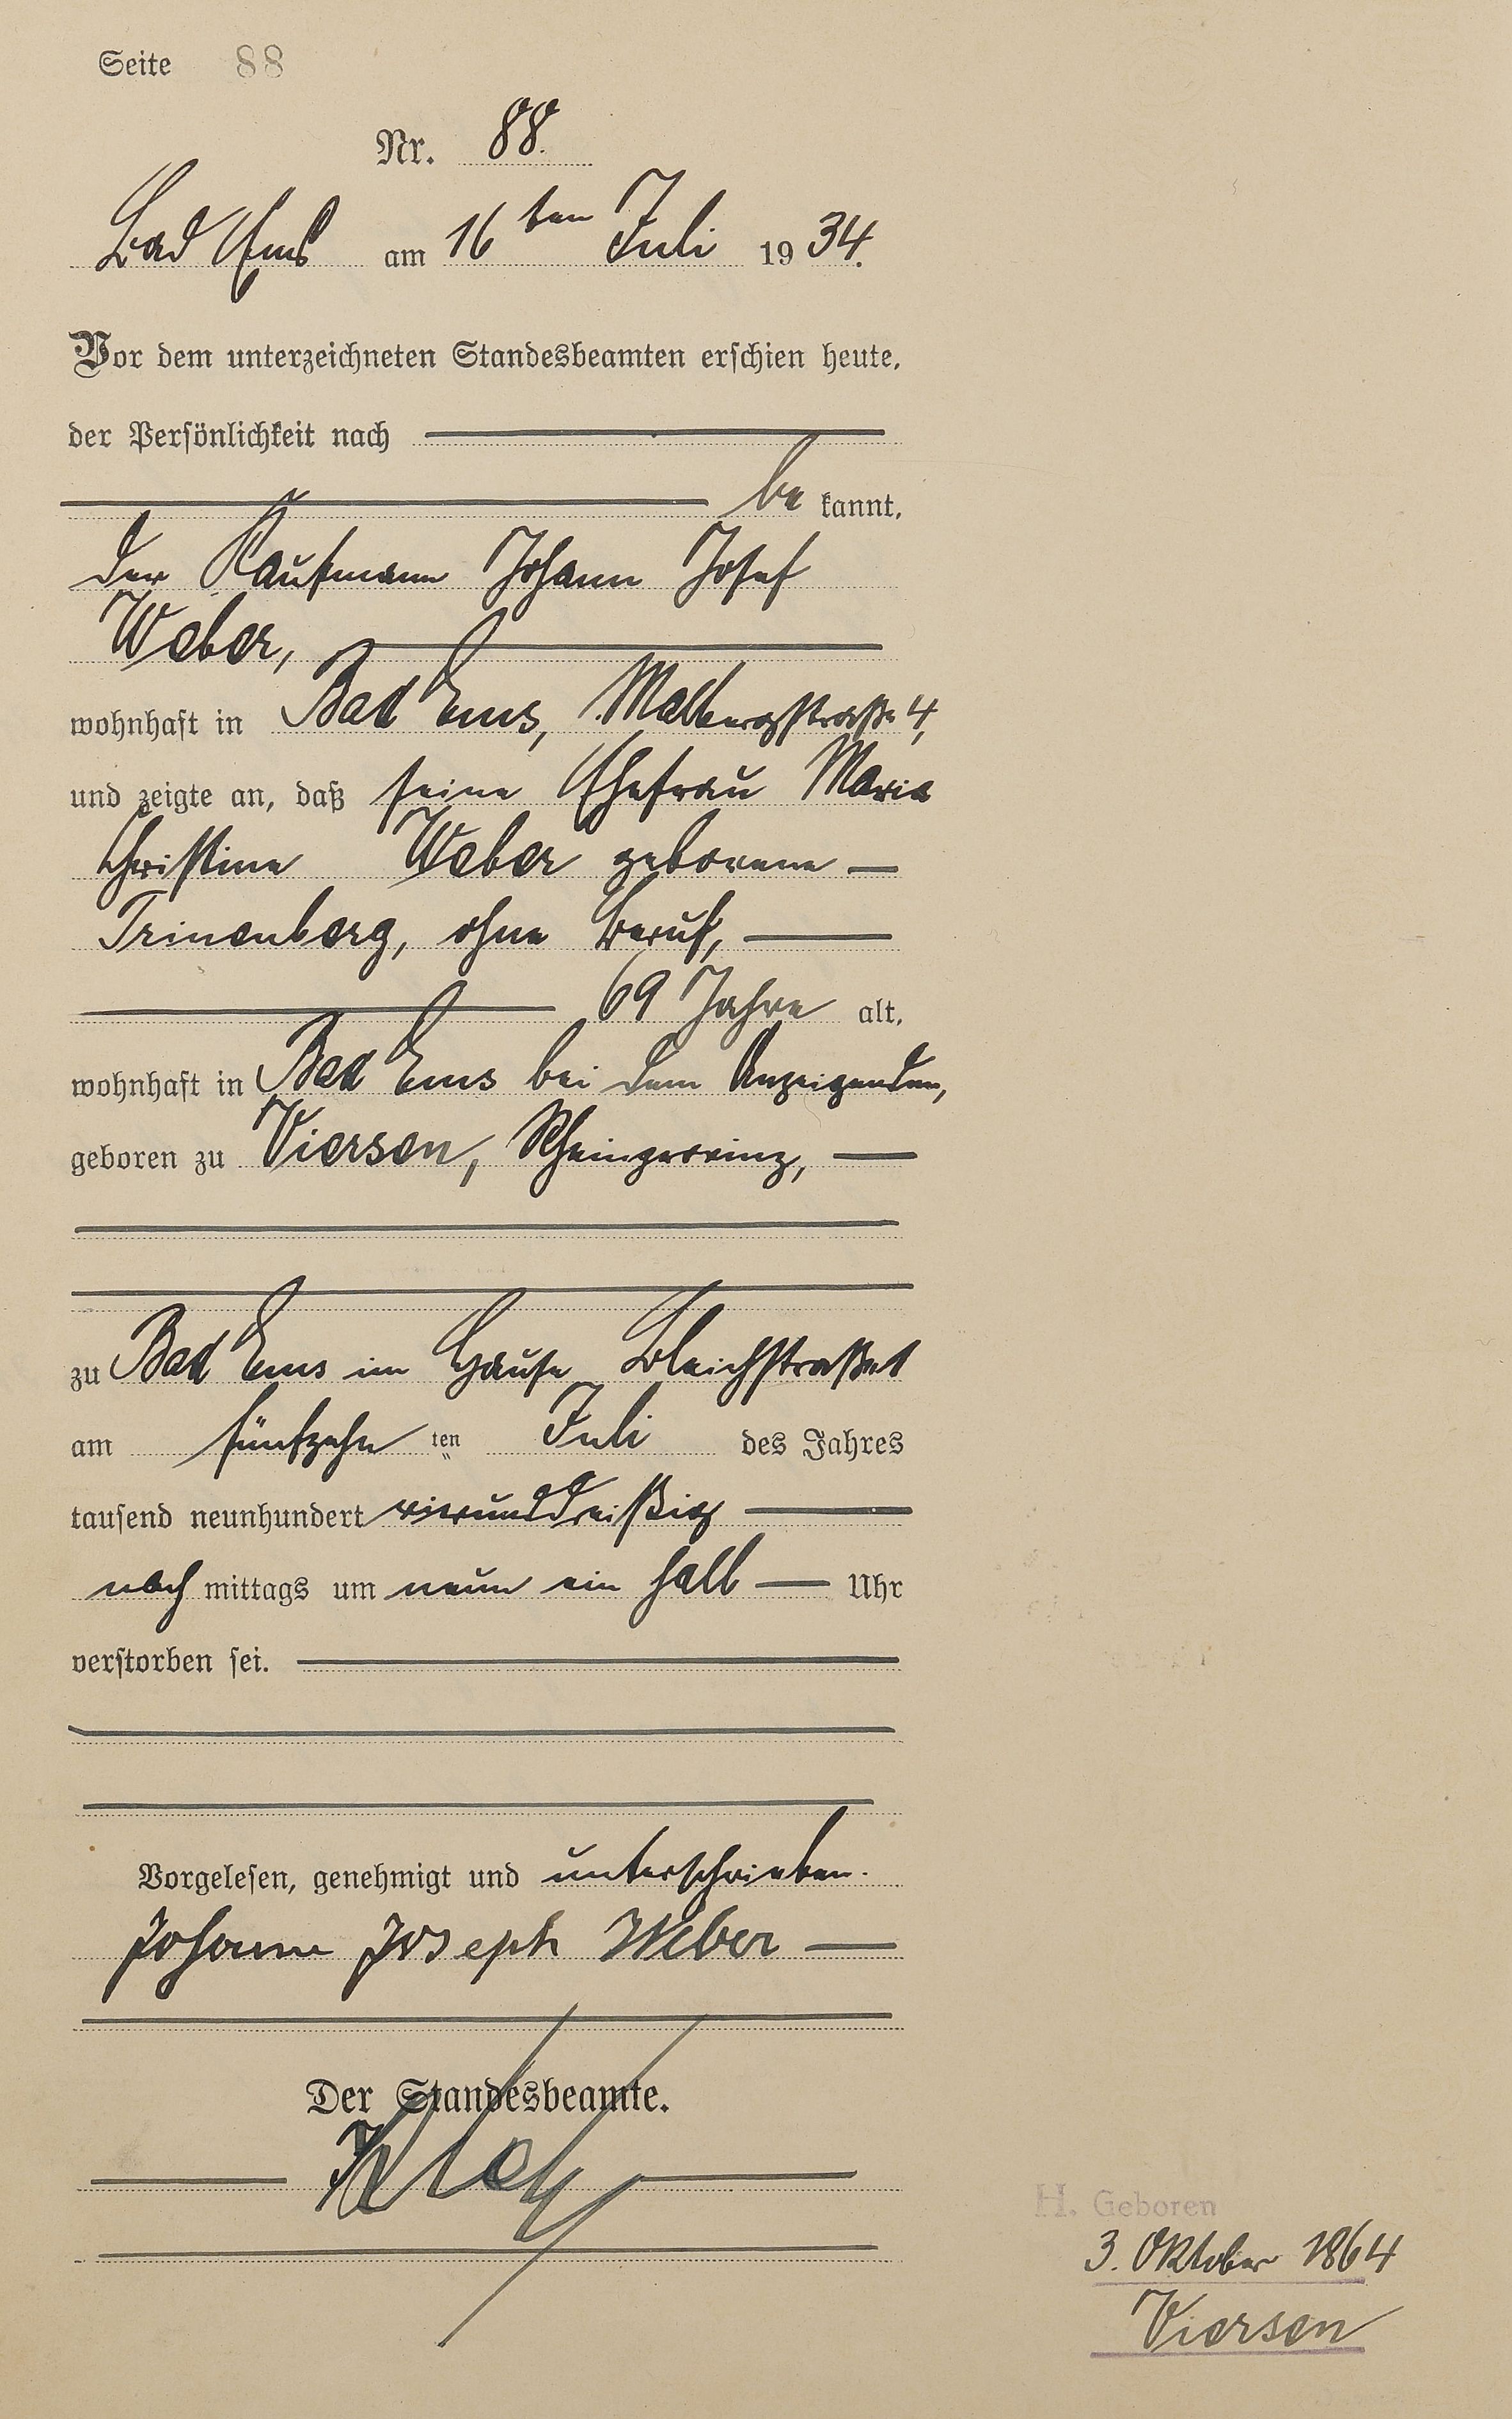 Seite 88
Nr. 88.
Bad Ems am 16ten Juli 1934.
Vor dem unterzeichneten Standesbeamten erschien heute,
der Persönlichkeit nach
bekannt,
der Kaufmann Johann Josef
Weber,
wohnhaft in Bad Ems, Malbergstraße 4,
und zeigte an, daß seine Ehefrau Maria
Christine Weber geborene
Trinenberg, ohne Beruf,
69 Jahre alt,
wohnhaft in Bad Ems bei dem Anzeigenden,
geboren zu Viersen, Rheinprovinz,
zu Bad Ems im Hause Bleichstraße 1
am fünfzehn ten Juli des Jahres
tausend neunhundert vierunddreißig
nachmittags um neun ein halb Uhr
verstorben sei.
Vorgelesen, genehmigt und unterschrieben.
Johann Joseph Weber
Der Standesbeamte.
H. Geboren
3. Oktober 1864
Viersen